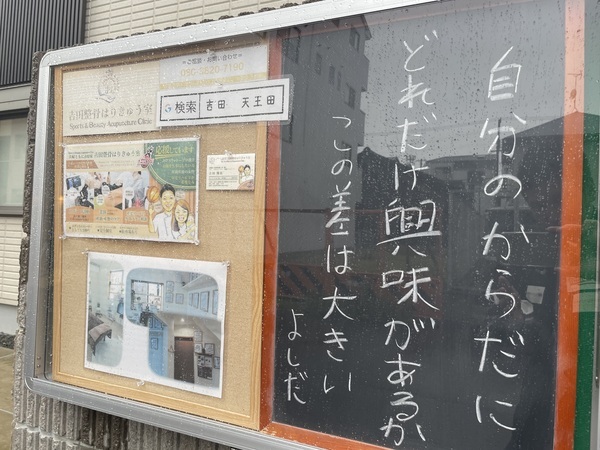 自分のからだに
どれだけ興味があるか
この差は大きい
よしだ
吉田整骨はりきゅう室
Sports & Beauty Acupuncture Clinic
ご相談・お問い合わせ
検索 吉田 天王田
応援しています